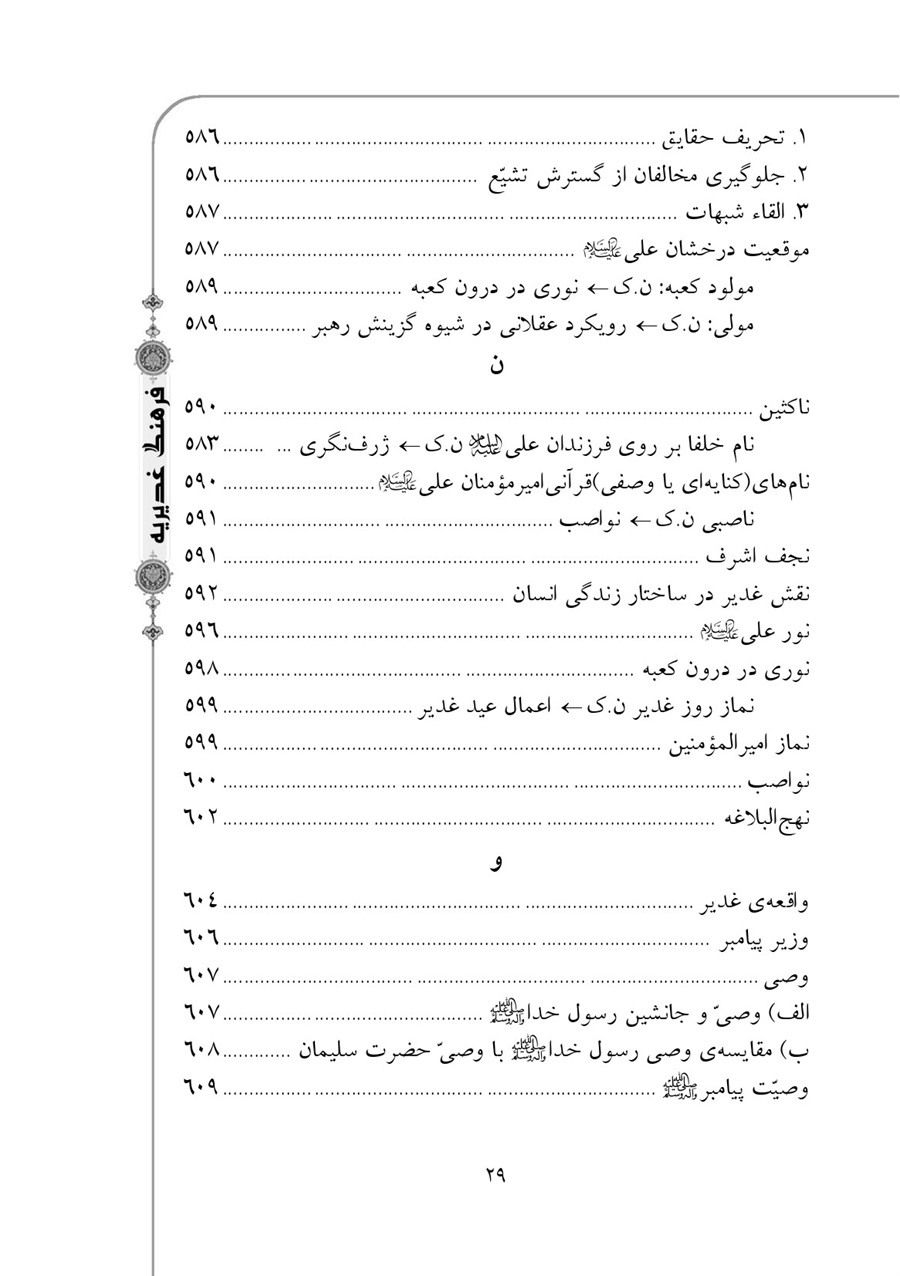 ۱. تحریف حقایق ........ ۵۸۶
۲. جلوگیری مخالفان از گسترش تشیّع ........ ۵۸۶
۳. القاء شبهات ........ ۵۸۷
موقعیت درخشان علی علیه‌السلام ........ ۵۸۷
مولود کعبه: ن.ک ← نوری در درون کعبه ........ ۵۸۹
مولی: ن.ک ← رویکرد عقلانی در شیوه گزینش رهبر ........ ۵۸۹
ن
ناکثین ........ ۵۹۰
نام خلفا بر روی فرزندان علی علیه‌السلام ن.ک ← ژرف‌نگری ... ........ ۵۸۳
نام‌های(کنایه‌ای یا وصفی)قرآنی‌امیرمؤمنان علی علیه‌السلام ........ ۵۹۰
ناصبی ن.ک ← نواصب ........ ۵۹۱
نجف اشرف ........ ۵۹۱
نقش غدیر در ساختار زندگی انسان ........ ۵۹۲
نور علی علیه‌السلام ........ ۵۹۶
نوری در درون کعبه ........ ۵۹۸
نماز روز غدیر ن.ک ← اعمال عید غدیر ........ ۵۹۹
نماز امیرالمؤمنین ........ ۵۹۹
نواصب ........ ۶۰۰
نهج‌البلاغه ........ ۶۰۲
و
واقعه‌ی غدیر ........ ۶۰۴
وزیر پیامبر ........ ۶۰۶
وصی ........ ۶۰۷
الف) وصیّ و جانشین رسول خدا ﷺ ........ ۶۰۷
ب) مقایسه‌ی وصی رسول خدا ﷺ با وصیّ حضرت سلیمان ........ ۶۰۸
وصیّت پیامبر ﷺ ........ ۶۰۹
فرهنگ غدیریه
۲۹